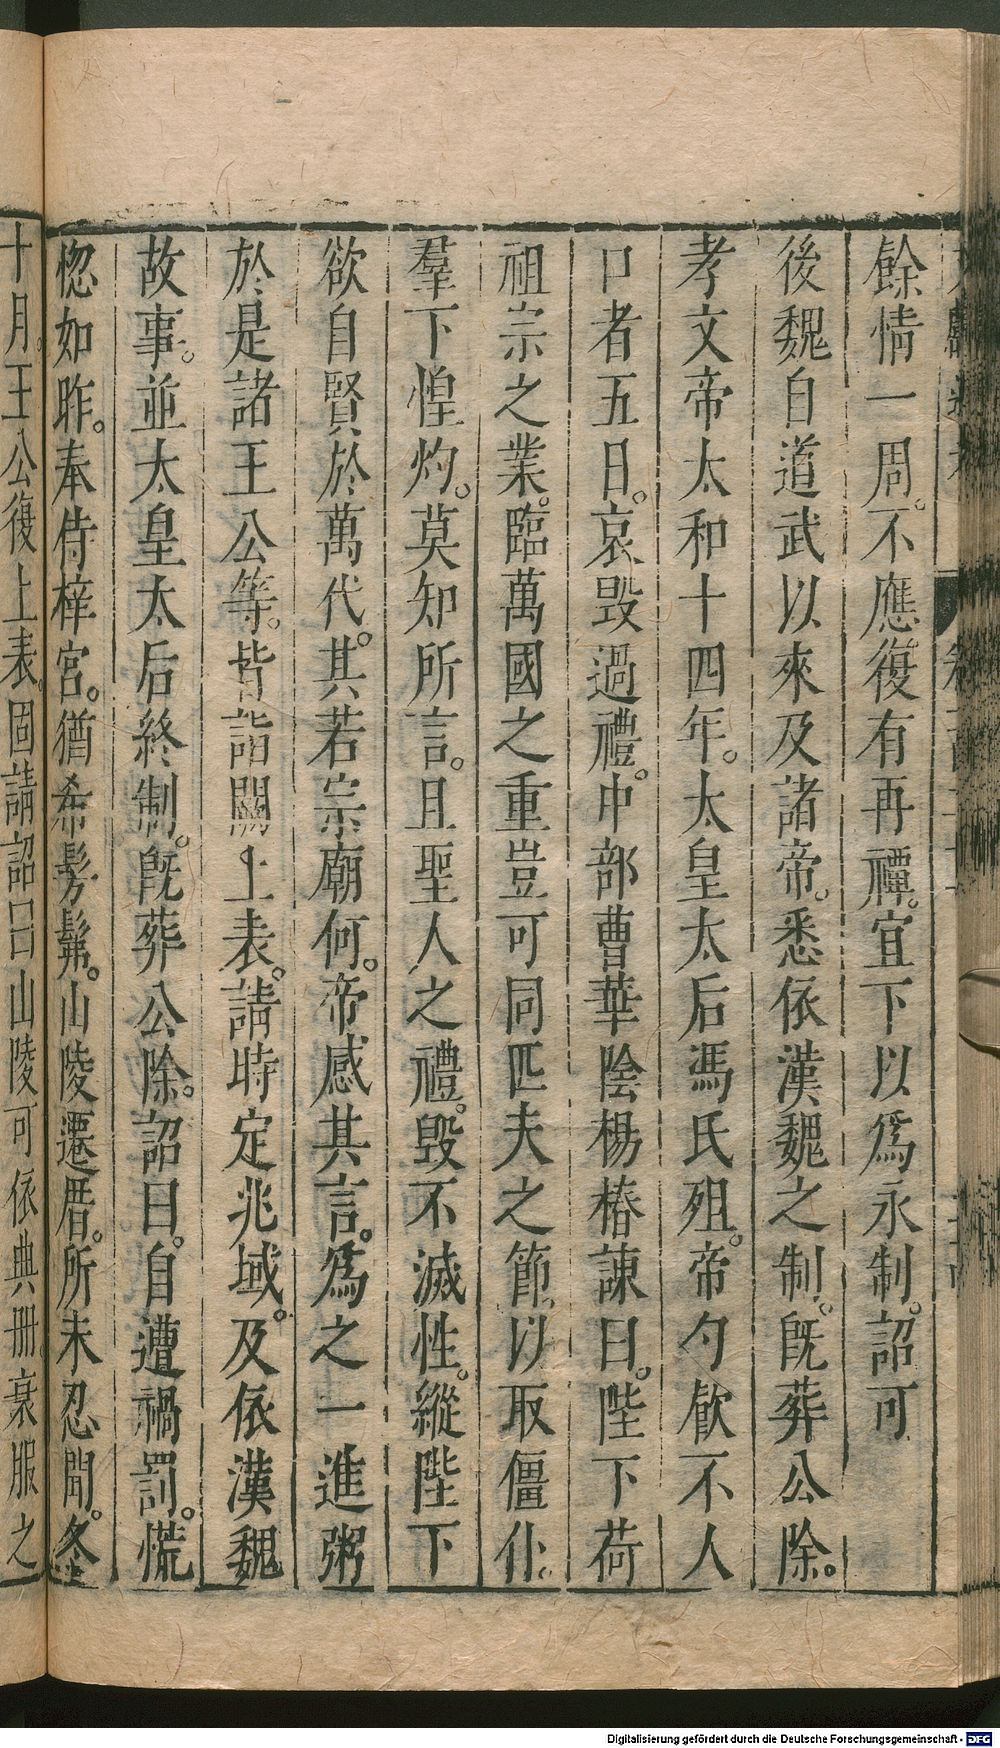 餘情一周。不應復有再禫。宜下以爲永制。詔可
後魏自道武以來及諸帝。悉依漢魏之制。旣葬公除。
孝文帝太和十四年。太皇太后馮氏殂。帝勺飮不人
口者五日。哀毁過禮。中部曹華陰楊椿諫曰。陛下荷
祖宗之業。臨萬國之重豈可同匹夫之節。以取僵仆。
羣下惶灼。莫知所言。且聖人之禮。毁不滅性。縱陛下
欲自賢於萬代。其若宗廟何。帝感其言。爲之一進粥
於是諸王公等。皆詣闕上表。請時定兆域。及依漢魏
故事。並太皇太后終制。旣葬公除。詔曰。自遭禍罰。慌
惚如昨。奉侍梓宮。猶希髣髴。山陵遷厝。所未忍聞。冬
十月。王公復上表。固請詔曰山陵可依典册。衰服之
Digitalisierung gefördert durch die Deutsche Forschungsgemeinschaft - DFG